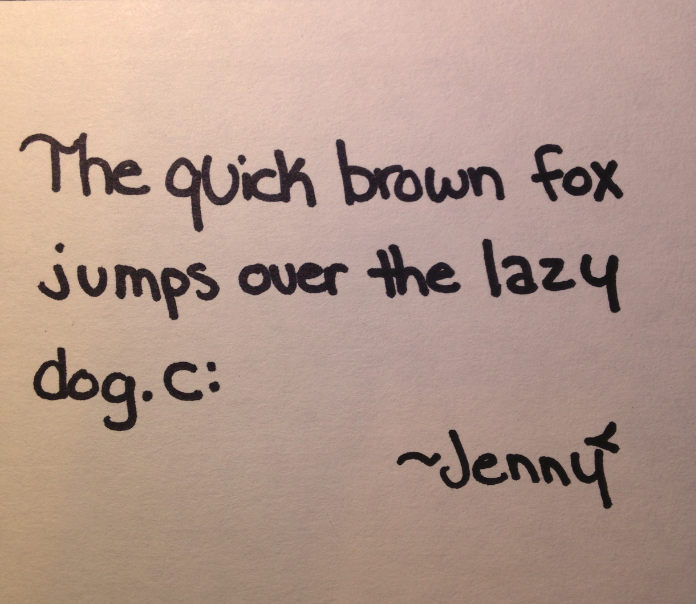 The quick brown fox
jumps over the lazy
dog. c:
~Jenny